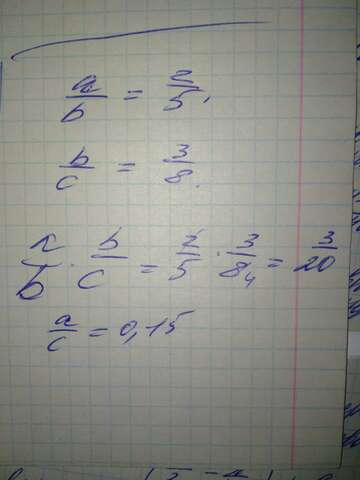 a/b = 2/5,
b/c = 3/8.
a/b · b/c = 2/5 · 3/8 4 = 3/20
a/c = 0,15